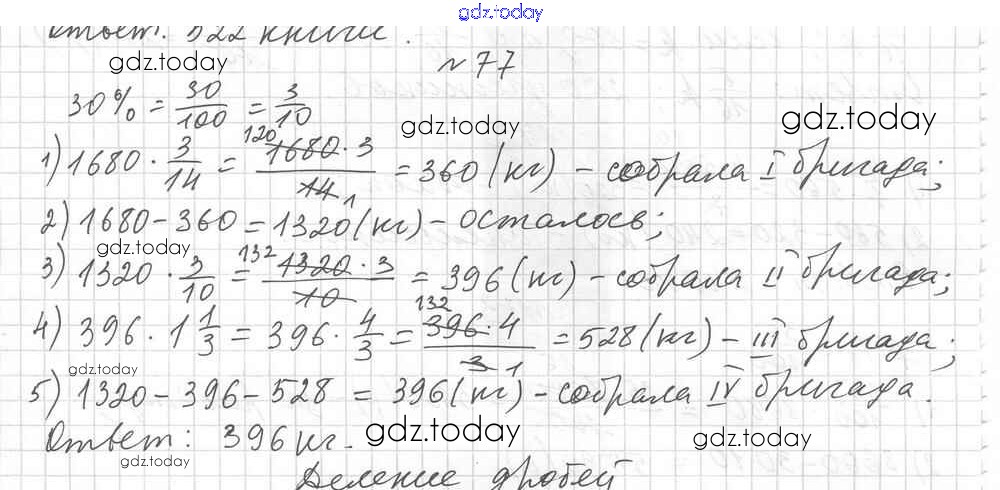 gdz.today
Ответ: 522 книги.
gdz.today
№77
30% = 30/100 = 3/10
gdz.today
gdz.today
1) 1680 · 3/14 = 120 1680 · 3/14 1 = 360 (кг) – собрала I бригада;
2) 1680 – 360 = 1320 (кг) – осталось;
gdz.today
3) 1320 · 3/10 = 132 1320 · 3/10 = 396 (кг) – собрала II бригада;
4) 396 · 1 1/3 = 396 · 4/3 = 132 396 · 4/3 1 = 528 (кг) – III бригада;
gdz.today
5) 1320 – 396 – 528 = 396 (кг) – собрала IV бригада.
Ответ: 396 кг.
gdz.today
gdz.today
gdz.today
Деление дробей